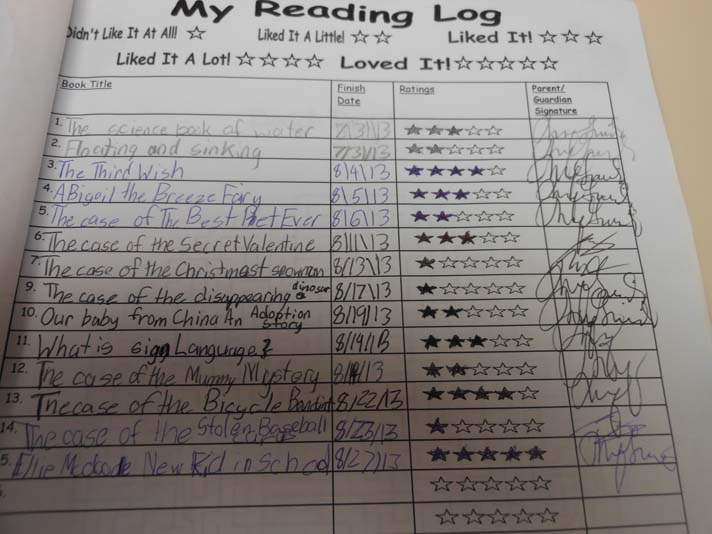 My Reading Log
Didn't Like It At All! ☆ Liked It A Little! ☆ ☆ Liked It! ☆ ☆ ☆
Liked It A Lot! ☆ ☆ ☆ ☆ Loved It! ☆ ☆ ☆ ☆ ☆
Book Title Finish Date Ratings Parent/Guardian Signature
1. The science book of water 7/31/13 ★★★☆☆
2. Floating and sinking 7/31/13 ★★☆☆☆
3. The Third Wish 8/4/13 ★★★★☆
4. ABigail the Breeze Fairy 8/5/13 ★★★☆☆
5. The case of The Best Pet Ever 8/6/13 ★★☆☆☆
6. The case of the Secret Valentine 8/11/13 ★★★☆☆
7. The case of the Christmast snowman 8/13/13 ★☆☆☆☆
9. The case of the disappearing dinosor 8/17/13 ★☆☆☆☆
10. Our baby from China An Adoption story 8/19/13 ★★☆☆☆
11. What is sign Language? ★★★☆☆
12. The case of the Mummy Mystery ★★☆☆☆
13. The case of the Bicycle 8/22/13 ★★★★☆
14. The case of the Stolen Baseball 8/23/13 ★☆☆☆☆
5. New Kid in School 8/27/13 ★★★★★
☆☆☆☆☆
☆☆☆☆☆